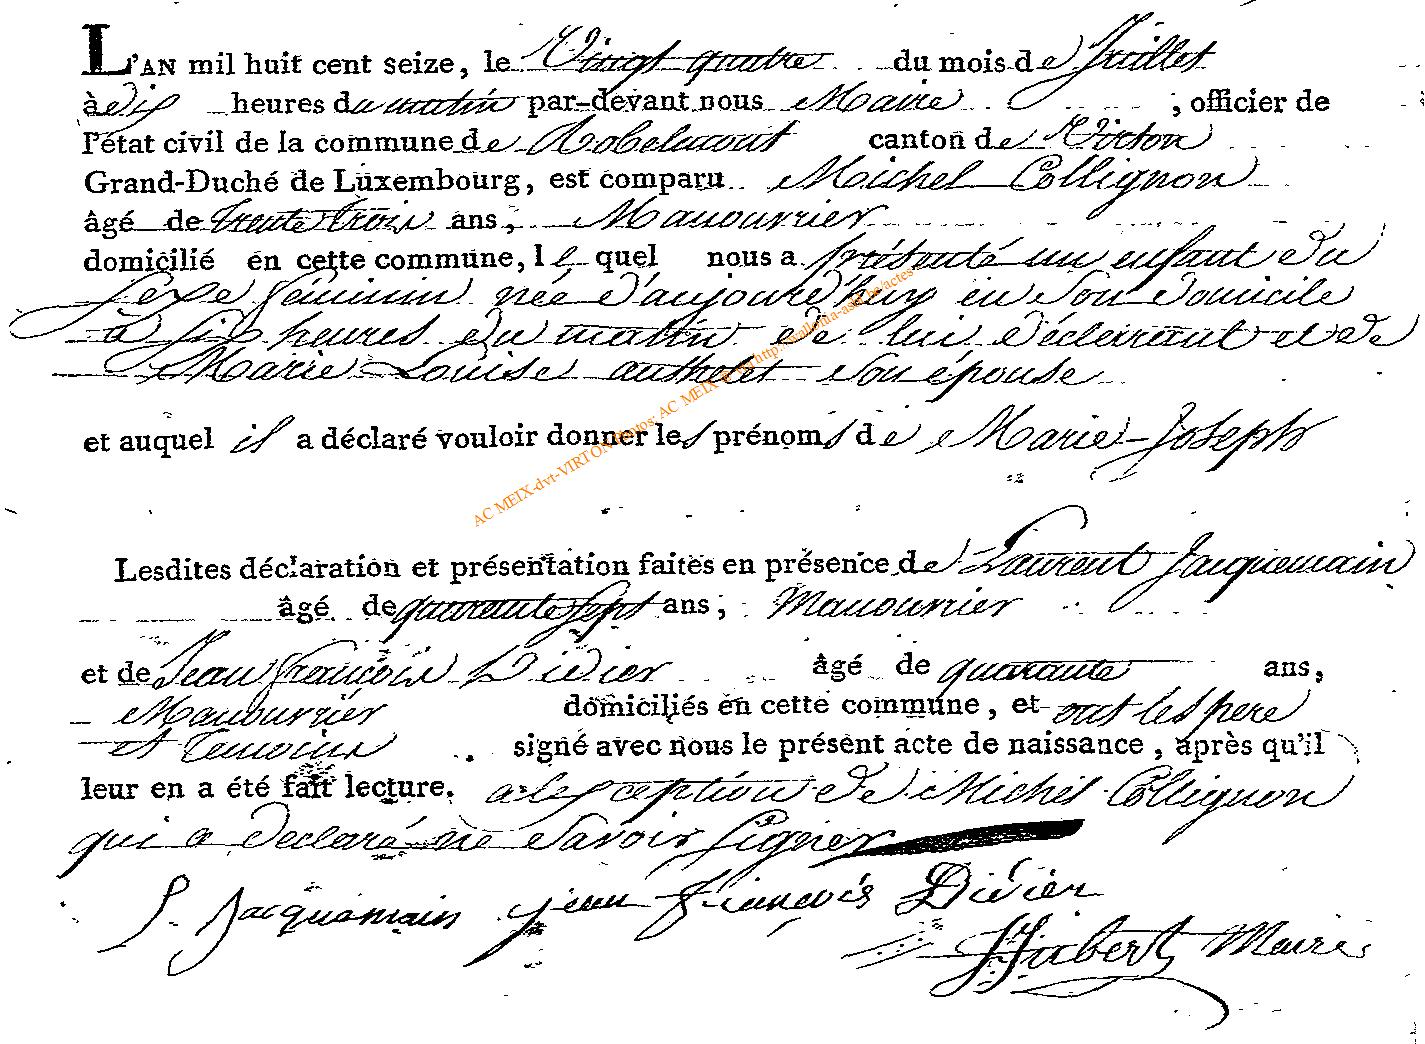 L'AN mil huit cent seize, le Vingt quatre du mois de Juillet
à dix heures du matin par-devant nous Maire , officier de
l'état civil de la commune de Robelmont canton de Virton
Grand-Duché de Luxembourg, est comparu Michel Collignon
âgé de trente trois ans, Manouvrier
domicilié en cette commune, le quel nous a présenté un enfant du
sexe féminin née d'aujourd'huy en son domicile
à six heures du matin de lui déclarant et de
Marie Louise authelet son épouse
et auquel il a déclaré vouloir donner les prénoms de Marie-Joseph
AC MEIX-dvt-VIRTON AC MEIX
Lesdites déclaration et présentation faites en présence de Laurent Jacquemain
âgé de quarante sept ans, Manouvrier
et de Jean françois Didier âgé de quarante ans,
Manouvrier domiciliés en cette commune, et ont les pere
et temoins signé avec nous le présent acte de naissance, après qu'il
leur en a été fait lecture. a lexception de Michel Collignon
qui a declaré ne savoir signer
L. Jacquemain jean françois Didier
Hubert Maire